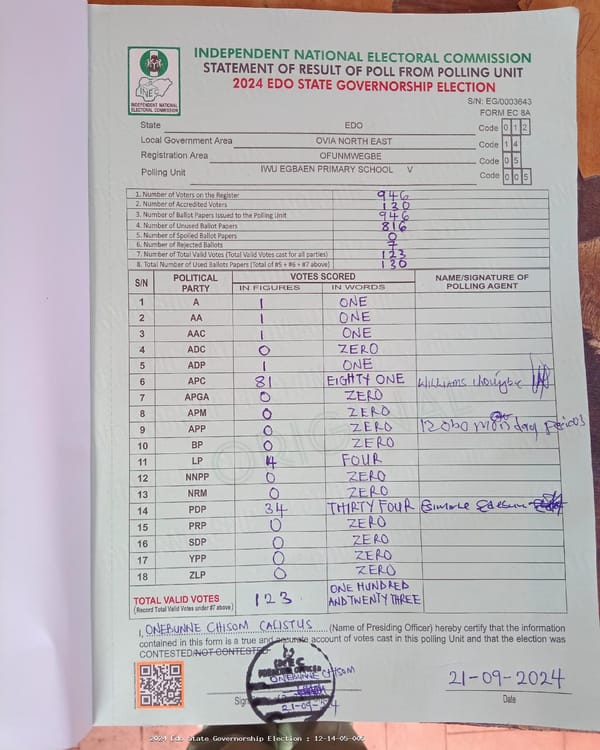 INDEPENDENT NATIONAL ELECTORAL COMMISSION
STATEMENT OF RESULT OF POLL FROM POLLING UNIT
2024 EDO STATE GOVERNORSHIP ELECTION
INEC
INDEPENDENT NATIONAL
ELECTORAL COMMISSION
S/N: EG/0003643
FORM EC 8A
State EDO Code 0 1 2
Local Government Area OVIA NORTH EAST Code 1 4
Registration Area OFUNMWEGBE Code 0 5
Polling Unit IWU EGBAEN PRIMARY SCHOOL V Code 0 0 5
1. Number of Voters on the Register 946
2. Number of Accredited Voters 130
3. Number of Ballot Papers Issued to the Polling Unit 946
4. Number of Unused Ballot Papers 816
5. Number of Spoiled Ballot Papers 0
6. Number of Rejected Ballots 7
7. Number of Total Valid Votes (Total Valid Votes cast for all parties) 123
8. Total Number of Used Ballots Papers (Total of #5 + #6 + #7 above) 130
S/N POLITICAL PARTY VOTES SCORED NAME/SIGNATURE OF POLLING AGENT
IN FIGURES IN WORDS
1 A 1 ONE
2 AA 1 ONE
3 AAC 1 ONE
4 ADC 0 ZERO
5 ADP 1 ONE
6 APC 81 EIGHTY ONE WILLIAMS
7 APGA 0 ZERO
8 APM 0 ZERO
9 APP 0 ZERO
10 BP 0 ZERO
11 LP 4 FOUR
12 NNPP 0 ZERO
13 NRM 0 ZERO
14 PDP 34 THIRTY FOUR
15 PRP 0 ZERO
16 SDP 0 ZERO
17 YPP 0 ZERO
18 ZLP 0 ZERO
TOTAL VALID VOTES 123 ONE HUNDRED
(Record Total Valid Votes under #7 above) AND TWENTY THREE
ORIGINAL
I, ONEBUNNE CHISOM CALISTUS (Name of Presiding Officer) hereby certify that the information
contained in this form is a true and accurate account of votes cast in this polling Unit and that the election was
CONTESTED/NOT CONTESTED
INEC
PRESIDING OFFICER
ONEBUNNE CHISOM
21-09-24
21-09-2024
Date
2024 Edo State Governorship Election : 12-14-05-005